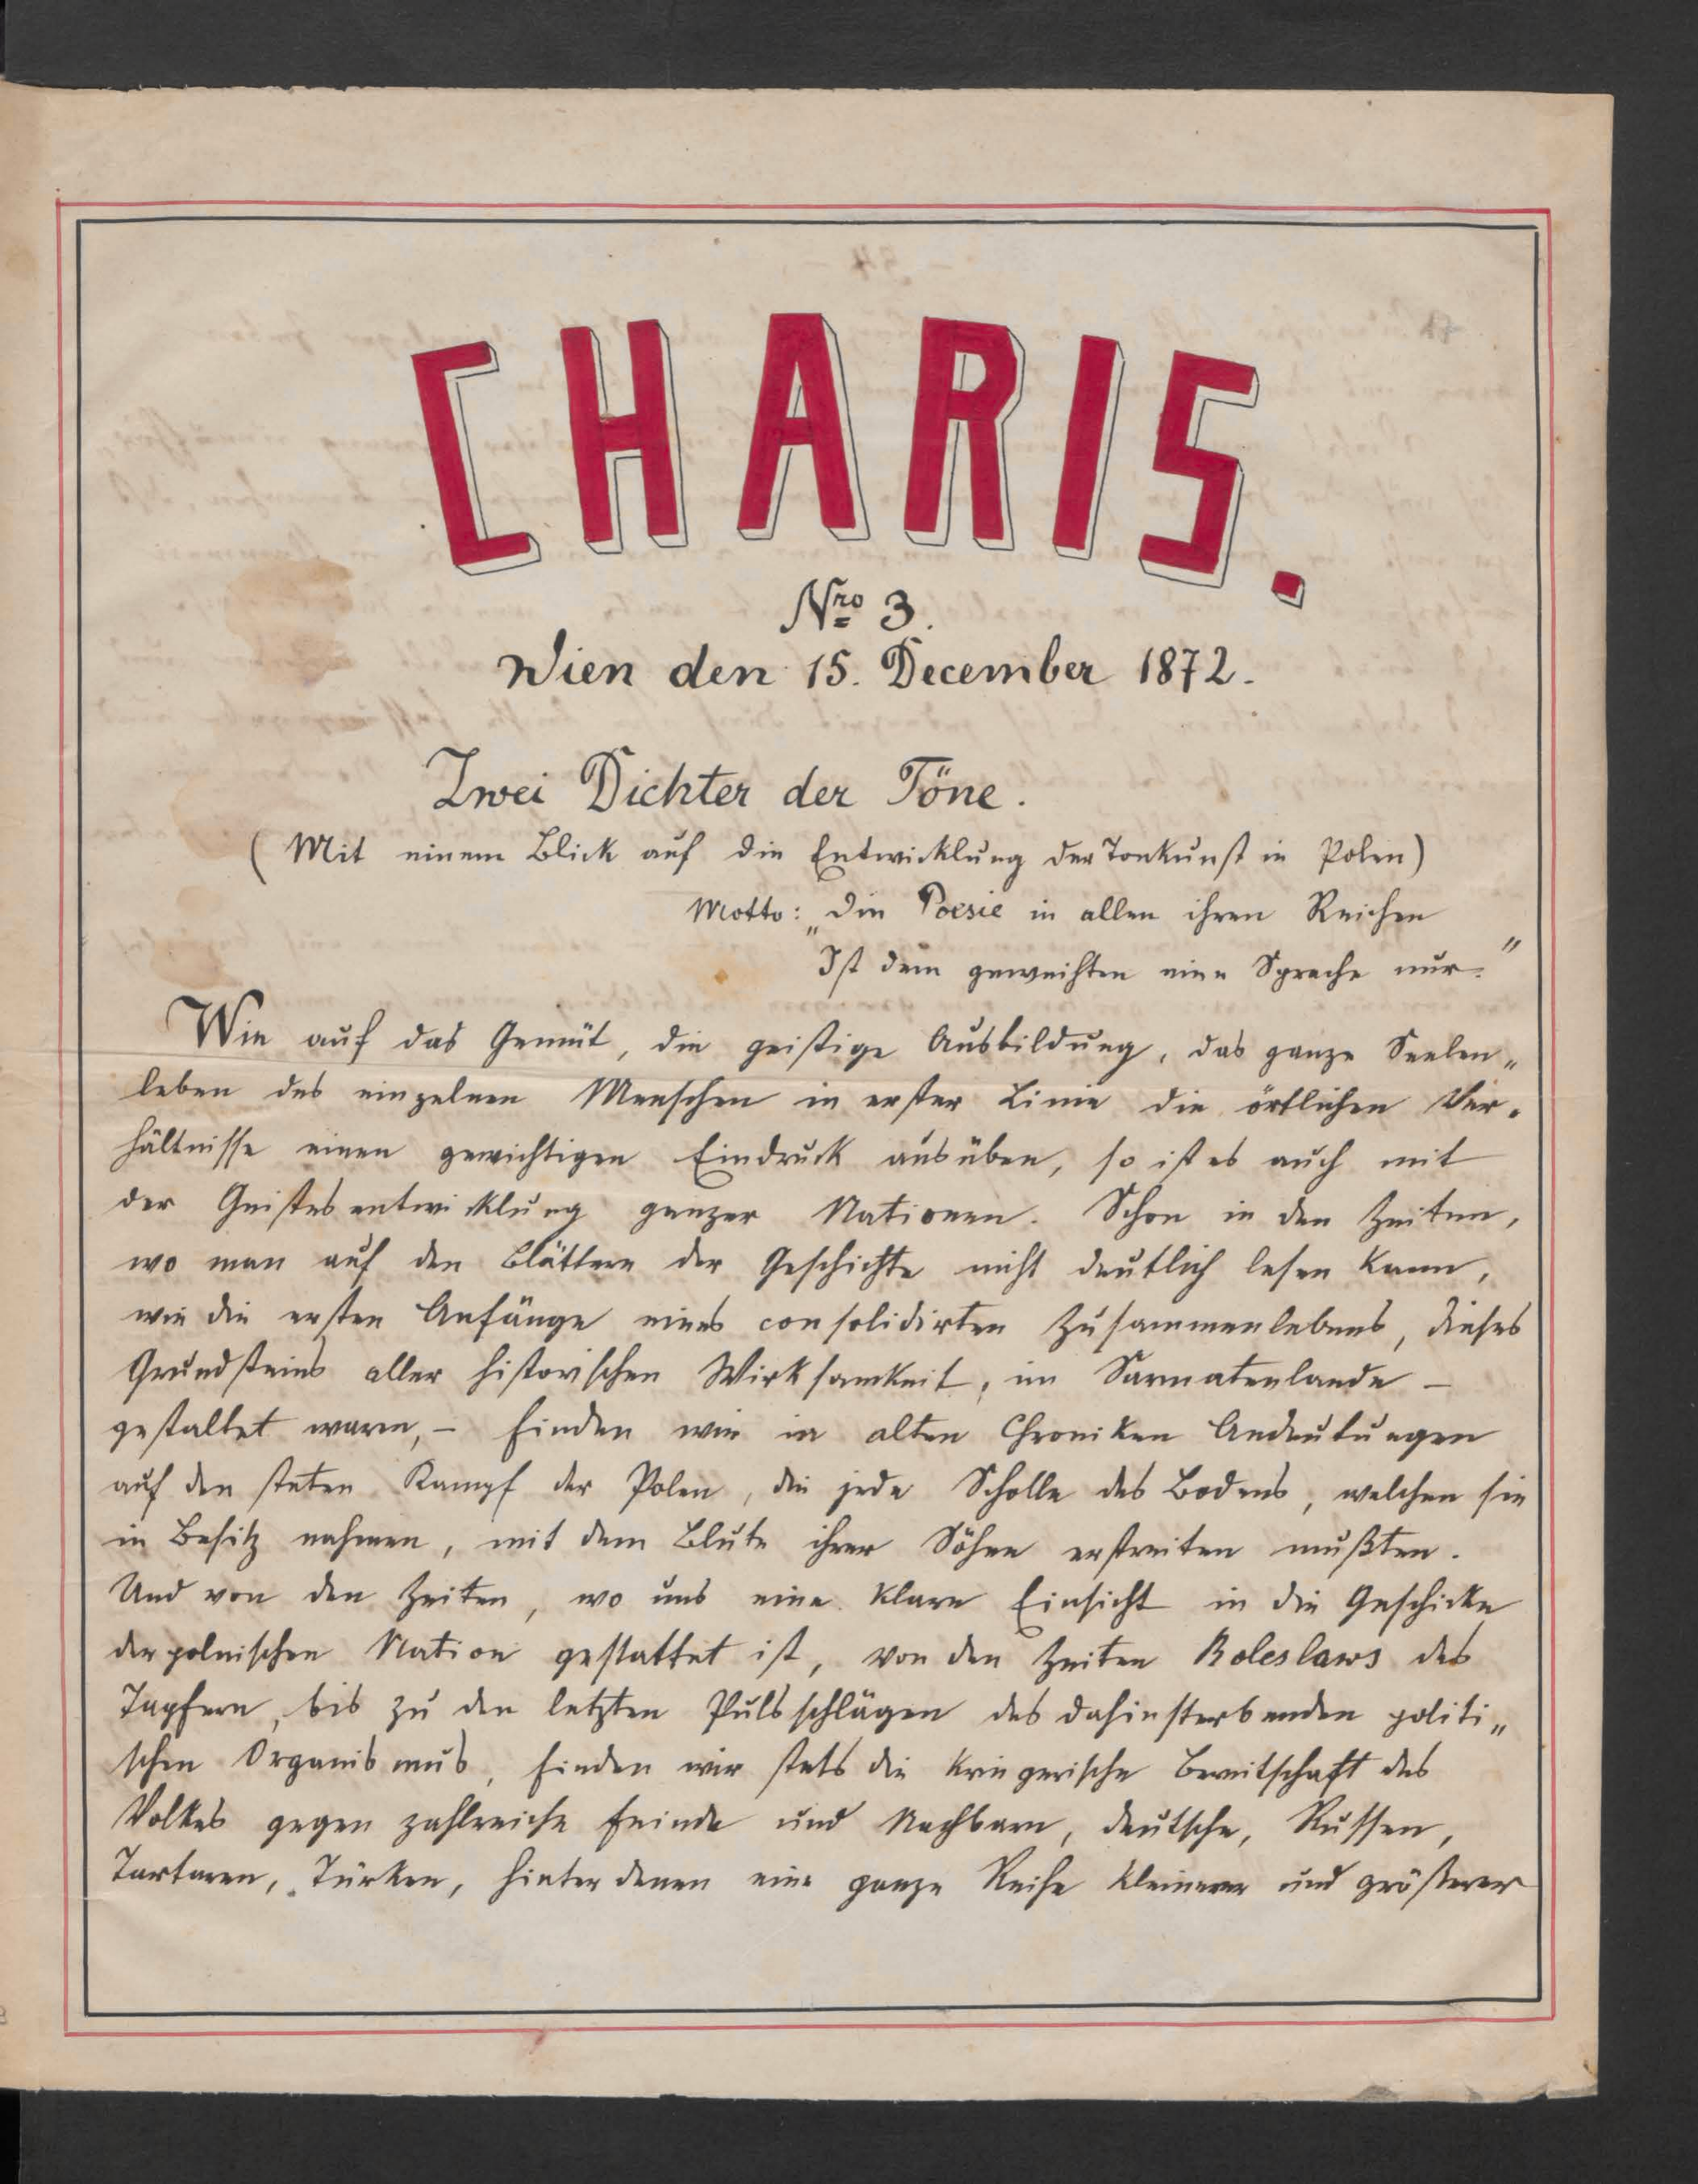 CHARIS.
Nro 3.
Wien den 15. December 1872.
Zwei Dichter der Töne.
(Mit einem Blick auf die Entwicklung der Tonkunst in Polen)
Motto: „Die Poesie in allen ihren Reichen
"Ist dem geweihten eine Sprache nur."
Wie auf das Gemüt, die geistige Ausbildung, das ganze Seelen„
leben des einzelnen Menschen in erster Linie die örtlichen Ver„
hältnisse einen gewichtigen Eindruck ausüben, so ist es auch mit
der Geistesentwicklung ganzer Nationen. Schon in den Zeiten,
wo man auf den Blättern der Geschichte nicht deutlich lesen kann,
wie die ersten Anfänge eines consolidirten Zusammenlebens, dieses
Grundsteins aller historischen Wirksamkeit, im Sarmatenlande –
gestaltet waren, – finden wir in alten Chroniken Andeutungen
auf den steten Kampf der Polen, die jede Scholle des Bodens, welchen sie
in Besitz nahmen, mit dem Blute ihrer Söhne erstreiten mußten.
Und von den Zeiten, wo uns eine klare Einsicht in die Geschicke
der polnischen Nation gestattet ist, von den Zeiten Boleslaws des
Tapfern, bis zu den letzten Pulsschlägen des dahinsterbenden politi„
schen Organismus, finden wir stets die kriegerische Bereitschaft des
Volkes gegen zahlreiche Feinde und Nachbarn, Deutsche, Russen,
Tartaren, Türken, hinter denen eine ganze Reihe kleinerer und größerer